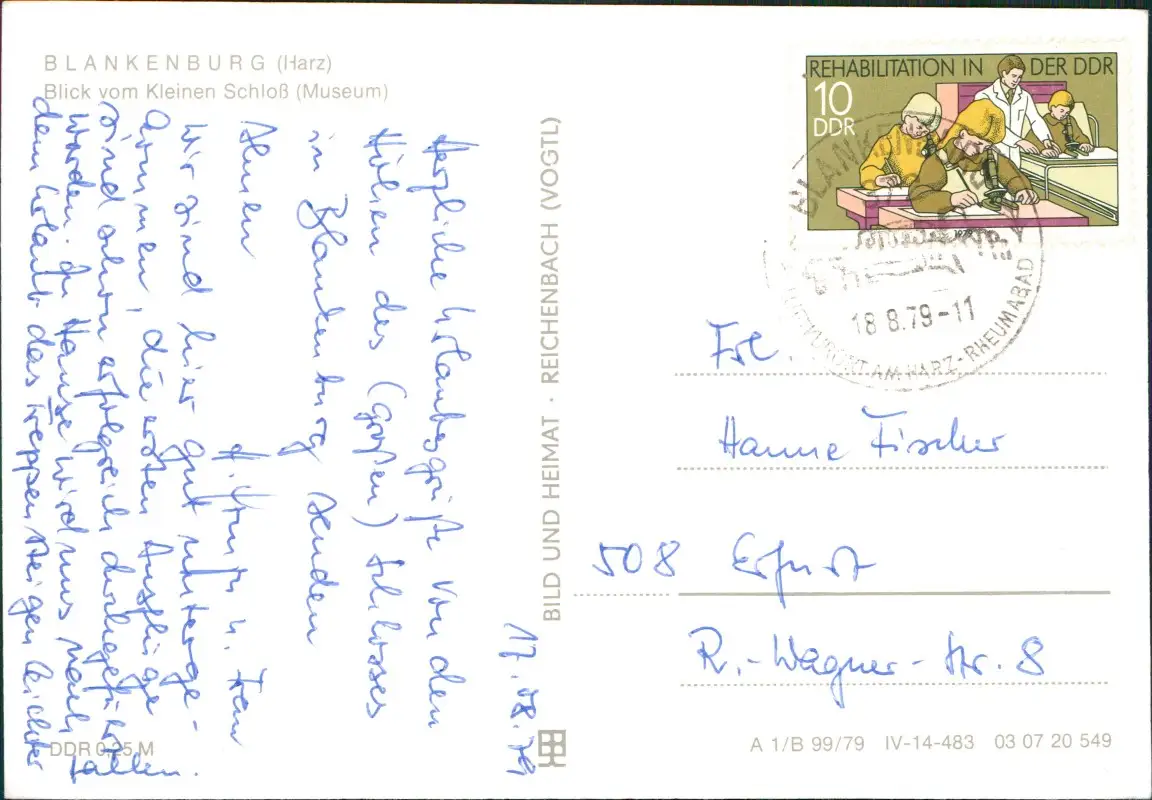 BLANKENBURG (Harz)
Blick vom Kleinen Schloß (Museum)
17.08.79
Herzliche Urlaubsgrüße von den
Höhen des (Großen) Schlosses
in Blankenburg senden
Ihnen
u. Frau
Wir sind hier gut unterge-
kommen, die ersten Ausflüge
sind schon erfolgreich durchgeführt
worden. Zu Hause wird uns nach
dem Urlaub das Treppensteigen leichter
fallen.
DDR 0,25 M
BILD UND HEIMAT · REICHENBACH (VOGTL)
REHABILITATION IN DER DDR
10
DDR
1979
BLANKEN
18.8.79-11
LUFTKURORT AM HARZ - RHEUMABAD
Frl.
Hanne Fischer
508 Erfurt
R.-Wagner-Str. 8
A 1/B 99/79 IV-14-483 03 07 20 549